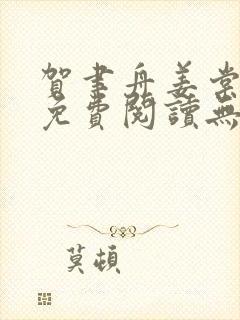 賀書舟姜棠
免費閱讀無
莫頓